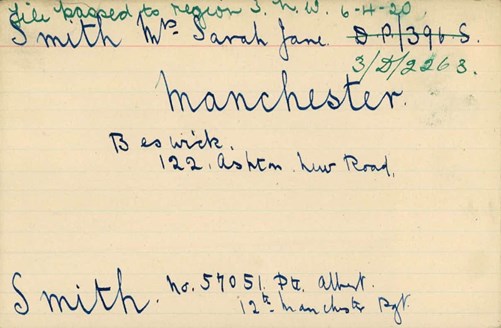 File passed to region 3. N.W. 6-4-20.
Smith Mrs Sarah Jane. D.P/396 S.
3/D/2263.
Manchester.
Beswick.
122. Ashton New Road.
Smith. No. 57051. Pte. Albert.
12th Manchester Rgt.